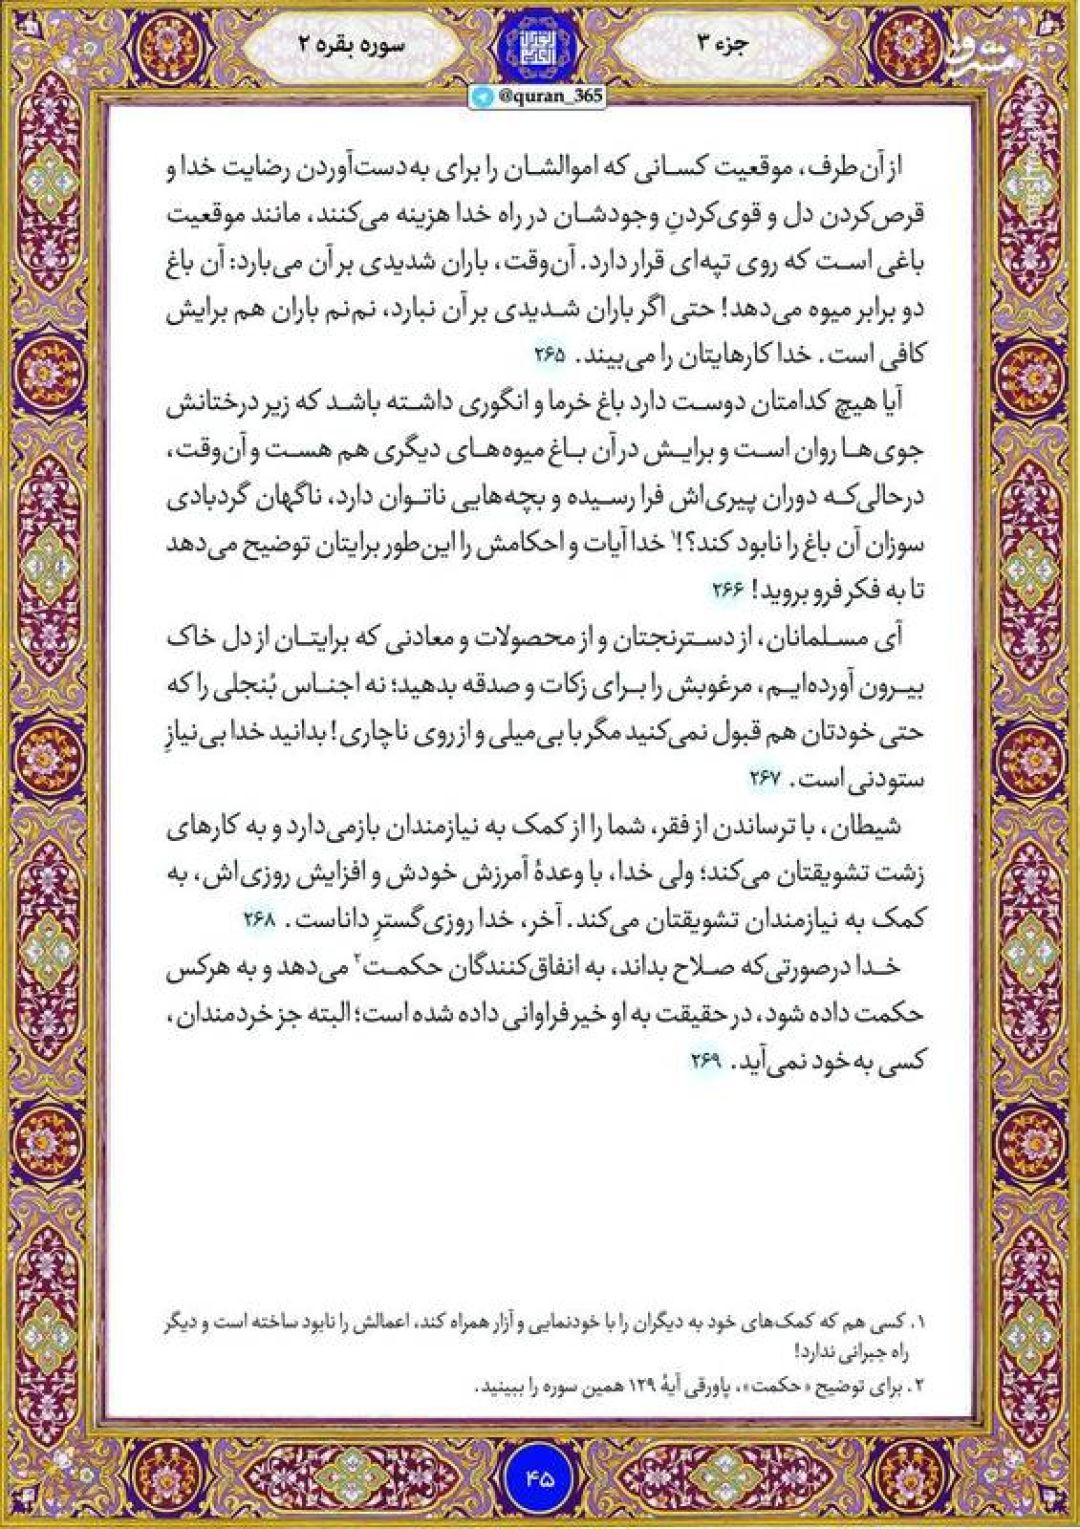 جزء ۳
سوره بقره ۲
@quran_365
از آن طرف، موقعیت کسانی که اموالشان را برای به‌دست‌آوردن رضایت خدا و
قرص‌کردن دل و قوی‌کردنِ وجودشان در راه خدا هزینه می‌کنند، مانند موقعیت
باغی است که روی تپه‌ای قرار دارد. آن‌وقت، باران شدیدی بر آن می‌بارد: آن باغ
دو برابر میوه می‌دهد! حتی اگر باران شدیدی بر آن نبارد، نم‌نم باران هم برایش
کافی است. خدا کارهایتان را می‌بیند. ۲۶۵
آیا هیچ کدامتان دوست دارد باغ خرما و انگوری داشته باشد که زیر درختانش
جوی‌ها روان است و برایش در آن باغ میوه‌های دیگری هم هست و آن‌وقت،
درحالی‌که دوران پیری‌اش فرا رسیده و بچه‌هایی ناتوان دارد، ناگهان گردبادی
سوزان آن باغ را نابود کند؟!۱ خدا آیات و احکامش را این‌طور برایتان توضیح می‌دهد
تا به فکر فرو بروید! ۲۶۶
آی مسلمانان، از دسترنجتان و از محصولات و معادنی که برایتان از دل خاک
بیرون آورده‌ایم، مرغوبش را برای زکات و صدقه بدهید؛ نه اجناس بُنجلی را که
حتی خودتان هم قبول نمی‌کنید مگر با بی‌میلی و از روی ناچاری! بدانید خدا بی‌نیازِ
ستودنی است. ۲۶۷
شیطان، با ترساندن از فقر، شما را از کمک به نیازمندان بازمی‌دارد و به کارهای
زشت تشویقتان می‌کند؛ ولی خدا، با وعدهٔ آمرزش خودش و افزایش روزی‌اش، به
کمک به نیازمندان تشویقتان می‌کند. آخر، خدا روزی‌گسترِ داناست. ۲۶۸
خدا درصورتی‌که صلاح بداند، به انفاق‌کنندگان حکمت۲ می‌دهد و به هرکس
حکمت داده شود، در حقیقت به او خیر فراوانی داده شده است؛ البته جز خردمندان،
کسی به خود نمی‌آید. ۲۶۹
۱. کسی هم که کمک‌های خود به دیگران را با خودنمایی و آزار همراه کند، اعمالش را نابود ساخته است و دیگر
راه جبرانی ندارد!
۲. برای توضیح «حکمت»، پاورقی آیهٔ ۱۲۹ همین سوره را ببینید.
۴۵